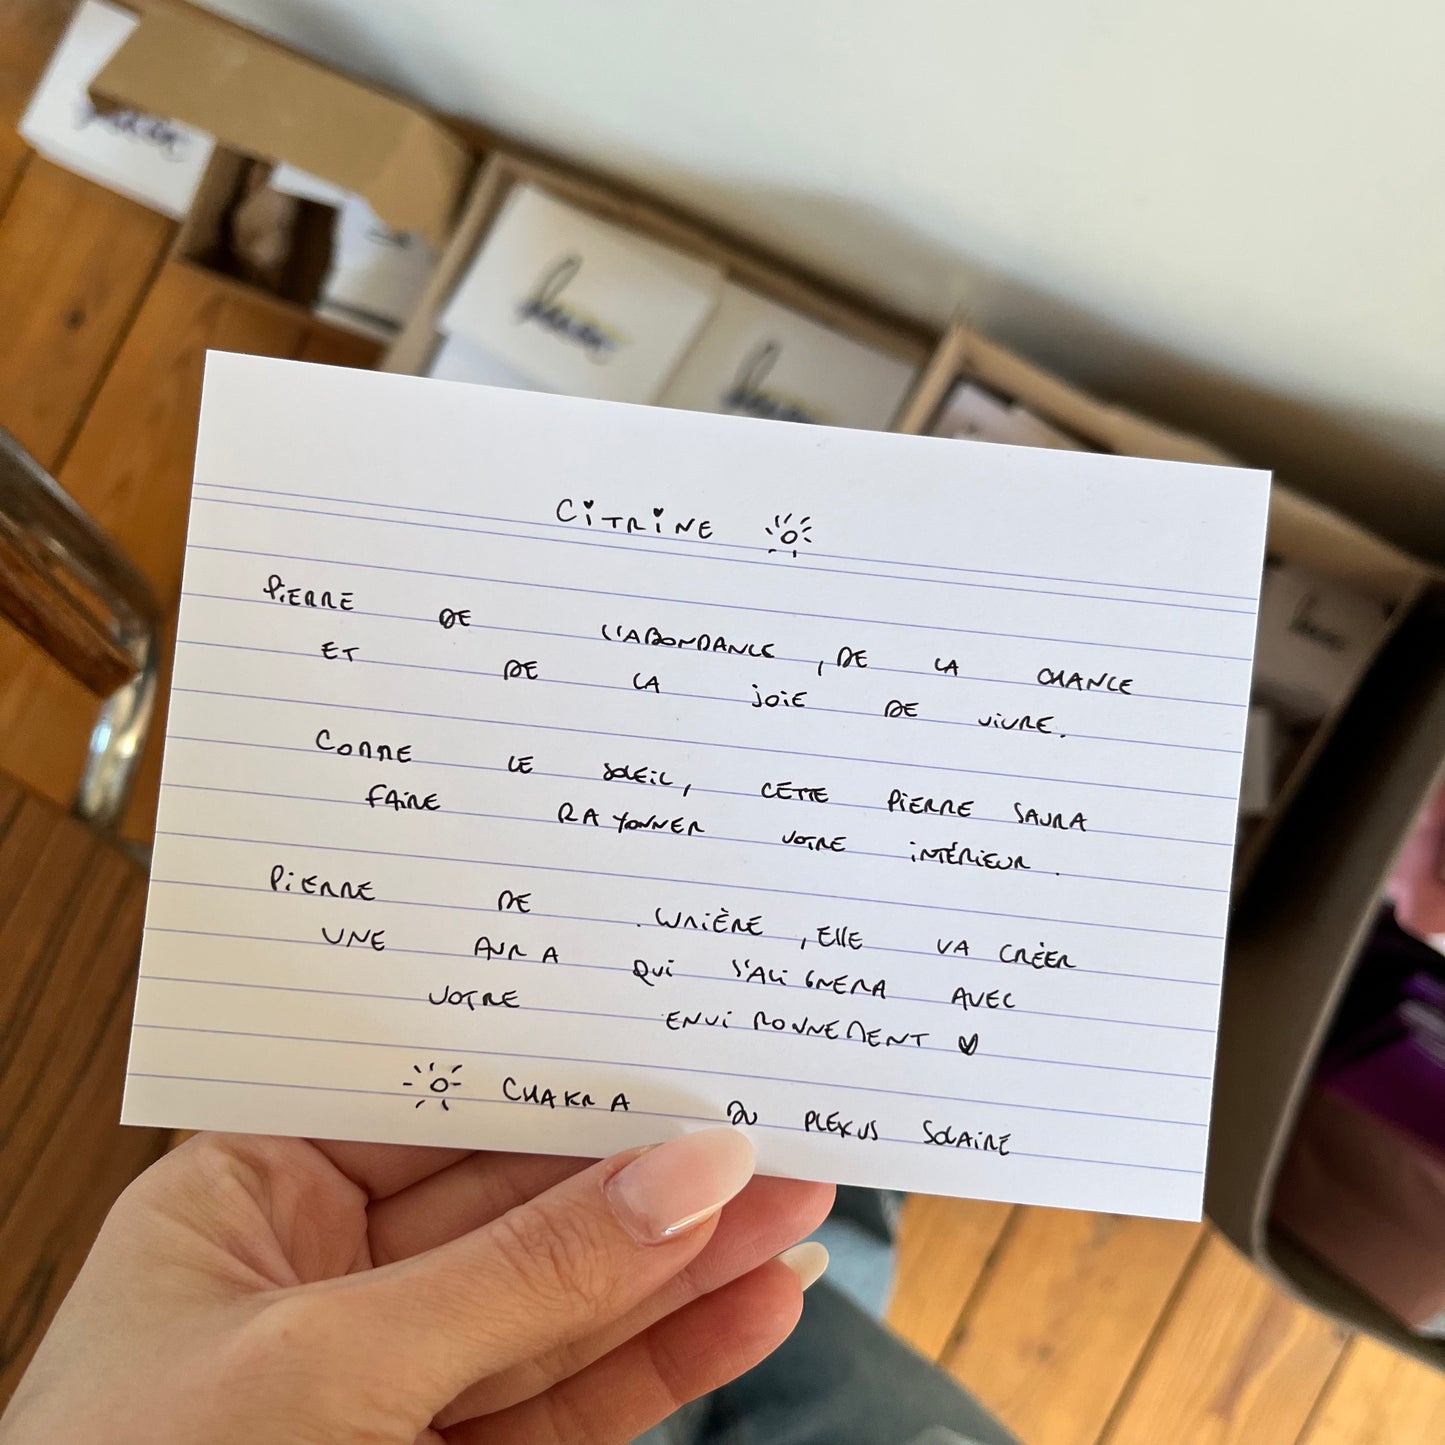 CiTRiNE
PiERRE DE L'ABONDANCE, DE LA CHANCE
ET DE LA JOiE DE ViVRE.
COMME LE SOLEiL, CETTE PiERRE SAURA
FAiRE RAYONNER VOTRE iNTÉRiEUR.
PiERRE DE LUMiÈRE, ELLE VA CRÉER
UNE AURA QUi S'ALiGNERA AVEC
VOTRE ENViRONNEMENT
CHAKRA DU PLEXUS SOLAiRE